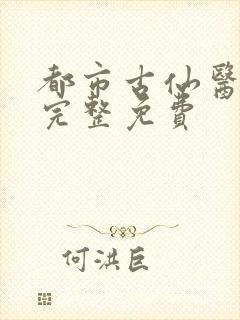 都市古仙醫
完整免費
何洪巨